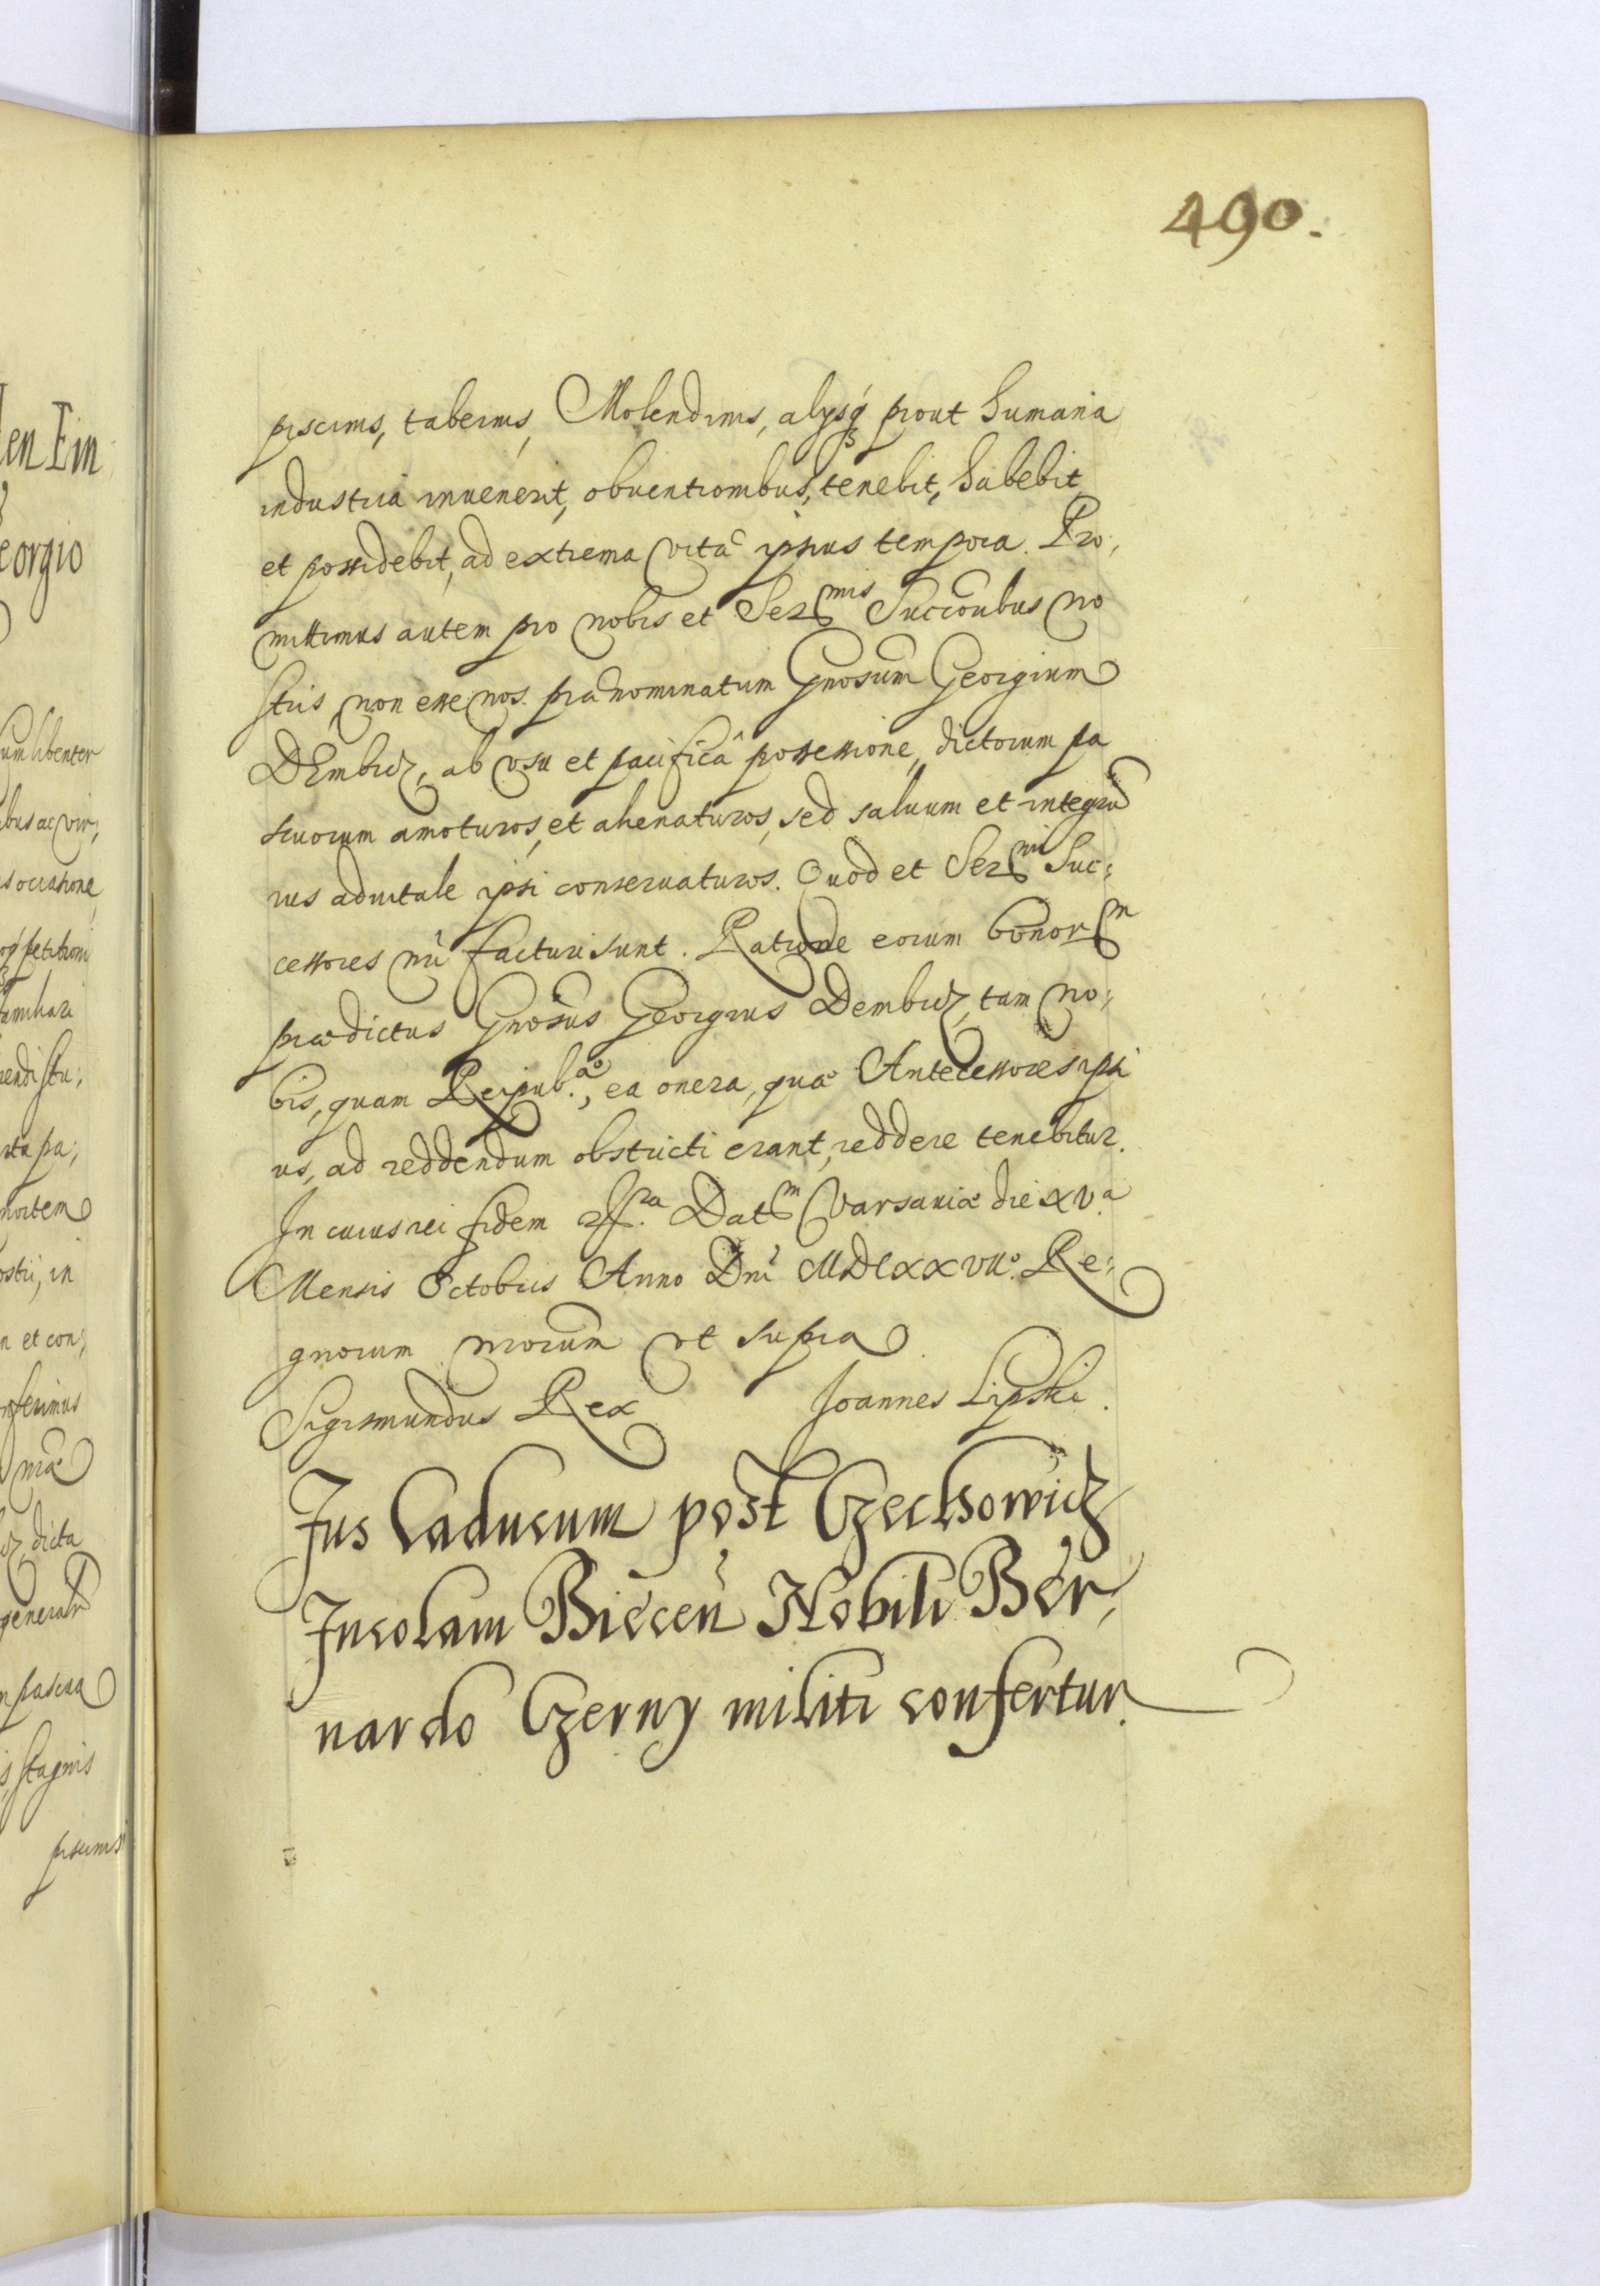 490.
piscinis, tabernis, Molendinis, alysq3 prout humana
industria inuenerit, obuentionibus, tenebit, habebit,
et possidebit, ad extrema vitæ ipsius tempora. Pro,
mittimus autem pro nobis et Sermis Succoribus no
stris, non esse nos prænominatum Gnosum Georgium
DEmbicz, ab vsu et pacificâ possessione, dictorum pa
scuorum amoturos, et alienaturos, sed saluum et integrũ
ius aduitale ipsi conseruaturos. Quod et Sermi Suc,
cessores nri facturi sunt. Ratione eorum bonorm
prædictus Gnosus Georgius Dembicz, tam no,
bis, quam Reipub.æ, ea onera, quæ Antecessores ipsi
us, ad reddendum obstricti erant, reddere tenebitur.
In cuius rei fidem etc. Datm Varsauiæ die XV.a
Mensis Octobris Anno Dni MDCXXVIIo. Re,
gnorum nrorum vt supra
Sigismundus Rex Joannes Lipski.
Jus Caducum post Czechowicz
Incolam Biecen Nobili Ber,
nardo Czerny militi confertur.
len Ein
eorgio
um libenter
ibus ac vir,
s occasione
petitioni
amiliari
rta pa,
mortem
ostri, in
n et con,
nferimus
nræ
dicta
generalr
n pascua
s, stagnis
piscinis